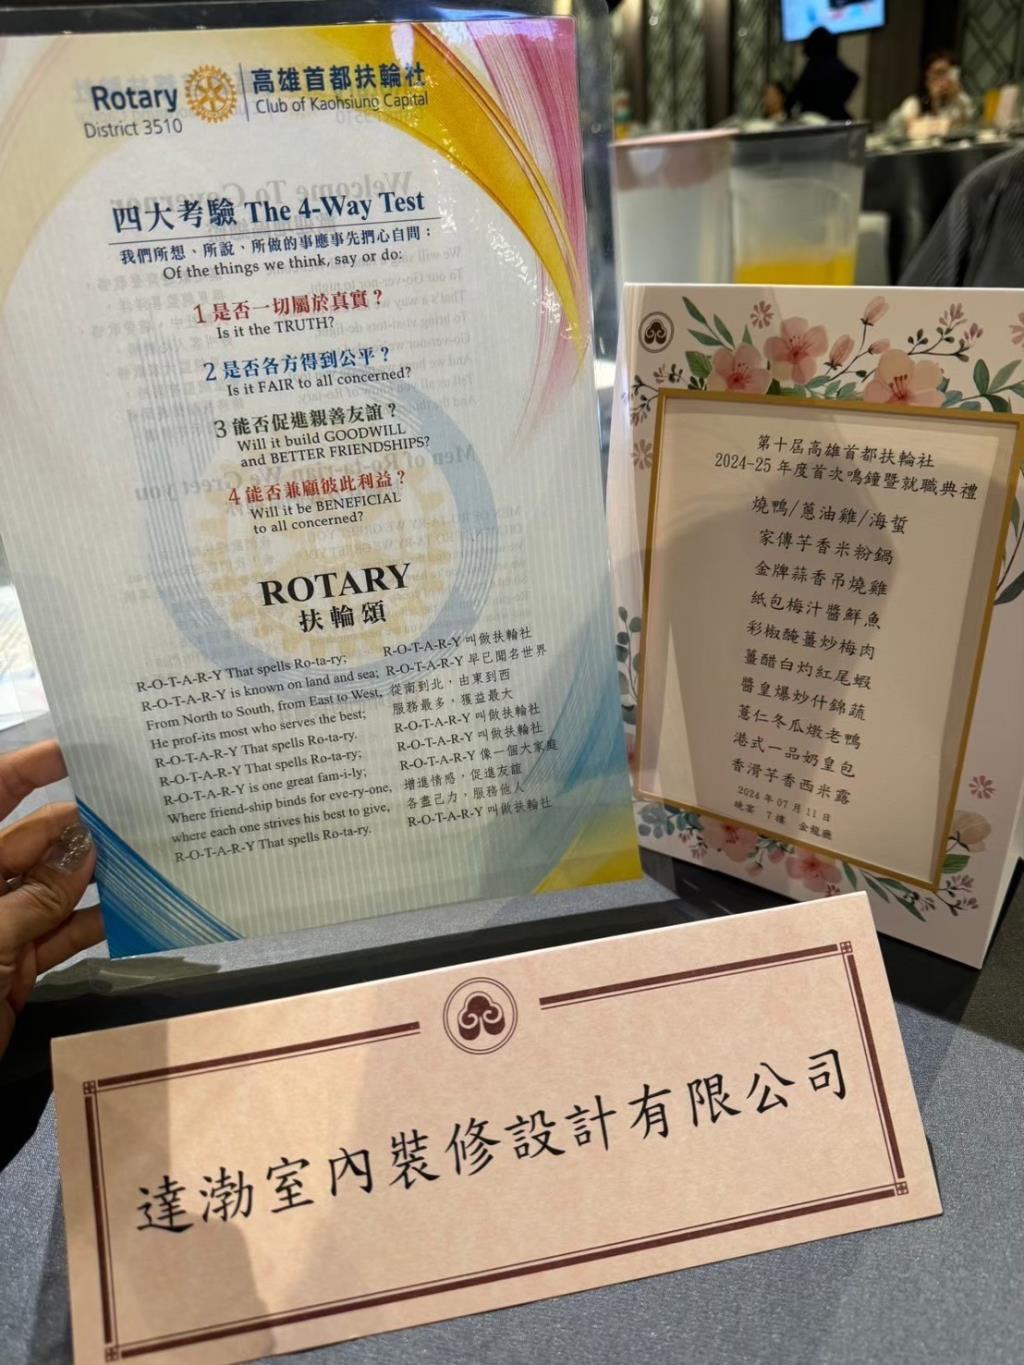 Rotary
District 3510
高雄首都扶輪社
Club of Kaohsiung Capital
四大考驗 The 4-Way Test
我們所想、所說、所做的事應事先捫心自問：
Of the things we think, say or do:
1 是否一切屬於真實？
Is it the TRUTH?
2 是否各方得到公平？
Is it FAIR to all concerned?
3 能否促進親善友誼？
Will it build GOODWILL
and BETTER FRIENDSHIPS?
4 能否兼顧彼此利益？
Will it be BENEFICIAL
to all concerned?
ROTARY
扶輪頌
R-O-T-A-R-Y That spells Ro-ta-ry;
R-O-T-A-R-Y is known on land and sea;
From North to South, from East to West,
He prof-its most who serves the best;
R-O-T-A-R-Y That spells Ro-ta-ry.
R-O-T-A-R-Y That spells Ro-ta-ry;
R-O-T-A-R-Y is one great fam-i-ly;
Where friend-ship binds for eve-ry-one,
where each one strives his best to give,
R-O-T-A-R-Y That spells Ro-ta-ry.
R-O-T-A-R-Y 叫做扶輪社
R-O-T-A-R-Y 早已聞名世界
從南到北，由東到西
服務最多，獲益最大
R-O-T-A-R-Y 叫做扶輪社
R-O-T-A-R-Y 叫做扶輪社
R-O-T-A-R-Y 像一個大家庭
增進情感，促進友誼
各盡己力，服務他人
R-O-T-A-R-Y 叫做扶輪社
第十屆高雄首都扶輪社
2024-25 年度首次鳴鐘暨就職典禮
燒鴨/蔥油雞/海蜇
家傳芋香米粉鍋
金牌蒜香吊燒雞
紙包梅汁醬鮮魚
彩椒醃薑炒梅肉
薑醋白灼紅尾蝦
醬皇爆炒什錦蔬
薏仁冬瓜燉老鴨
港式一品奶皇包
香滑芋香西米露
2024 年 07 月 11 日
晚宴 7 樓 金龍廳
達渤室內裝修設計有限公司